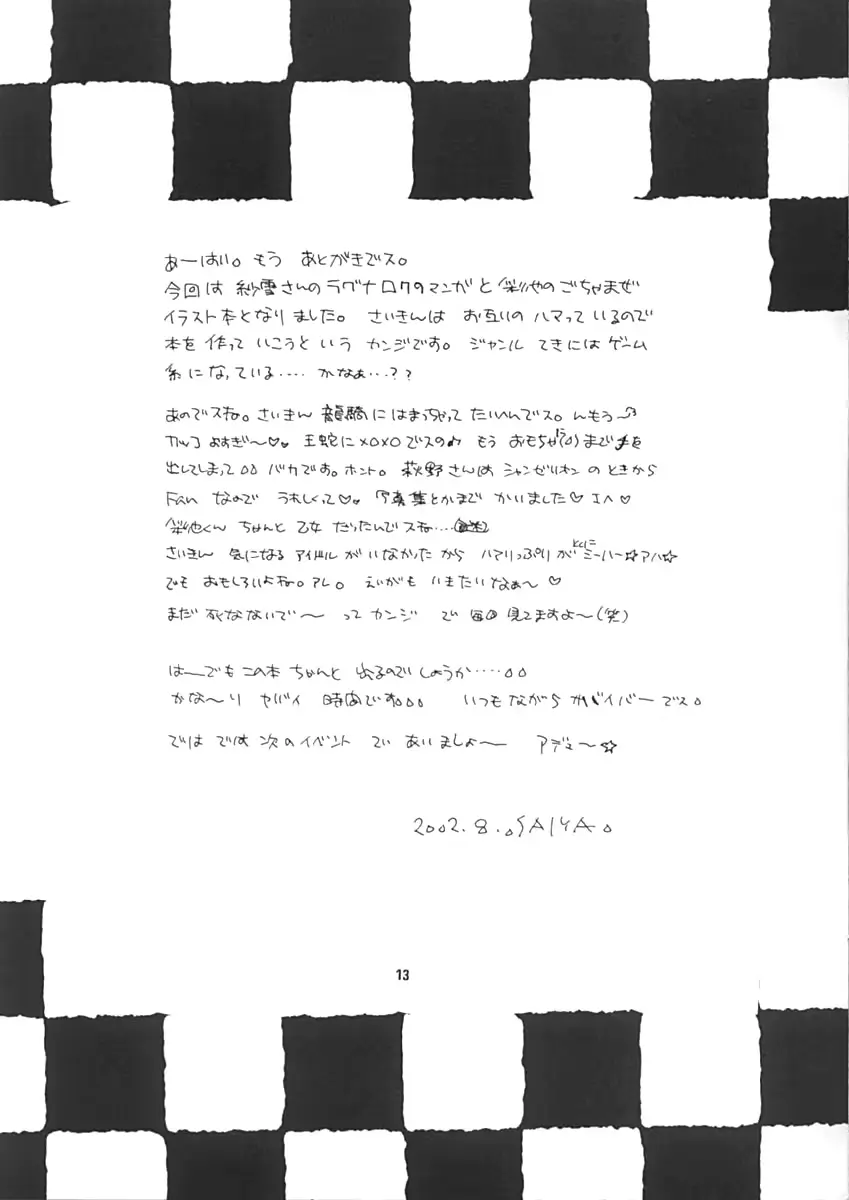 あーはい。もう あとがきでス。
今回は 紗雪さんのラグナロクのマンガと 彩やのごちゃまぜ
イラスト本となりました。さいきんは お互いの ハマっているので
本を作っていこうという カンジです。ジャンル てきにはゲーム
系になっている‥‥ かなぁ…??
あのでスね。さいきん 龍騎にはまっちゃって たいへんでス。んもう〜
カッコよすぎ〜♡♡ 王蛇に×O×Oでスの♪ もう おもちゃ まで を
出してしまって バカです。ホント。萩野さんは シャンゼリオン のときから
Fan なので うれしくって♡。写真集とかまで かいました♡ エヘ♡
くん ちゃんと 乙女 だったんでスね‥‥
さいきん 気になる アイドル がいなかった から ハマリっぷり が ミーハー☆アハ☆
でも おもしろいよね。アレ。えいがも いきたいなぁ〜 ♡
まだ 死なないで〜 って カンジ で 毎回 見てますよ〜(笑)
はーでも この本 ちゃんと 出るのでしょうか‥‥
かな〜り ヤバイ 時間です。 いつもながら バイバーでス。
では では 次のイベント で あいましょ〜 アデュ〜☆
2002.8. SAIYA
13